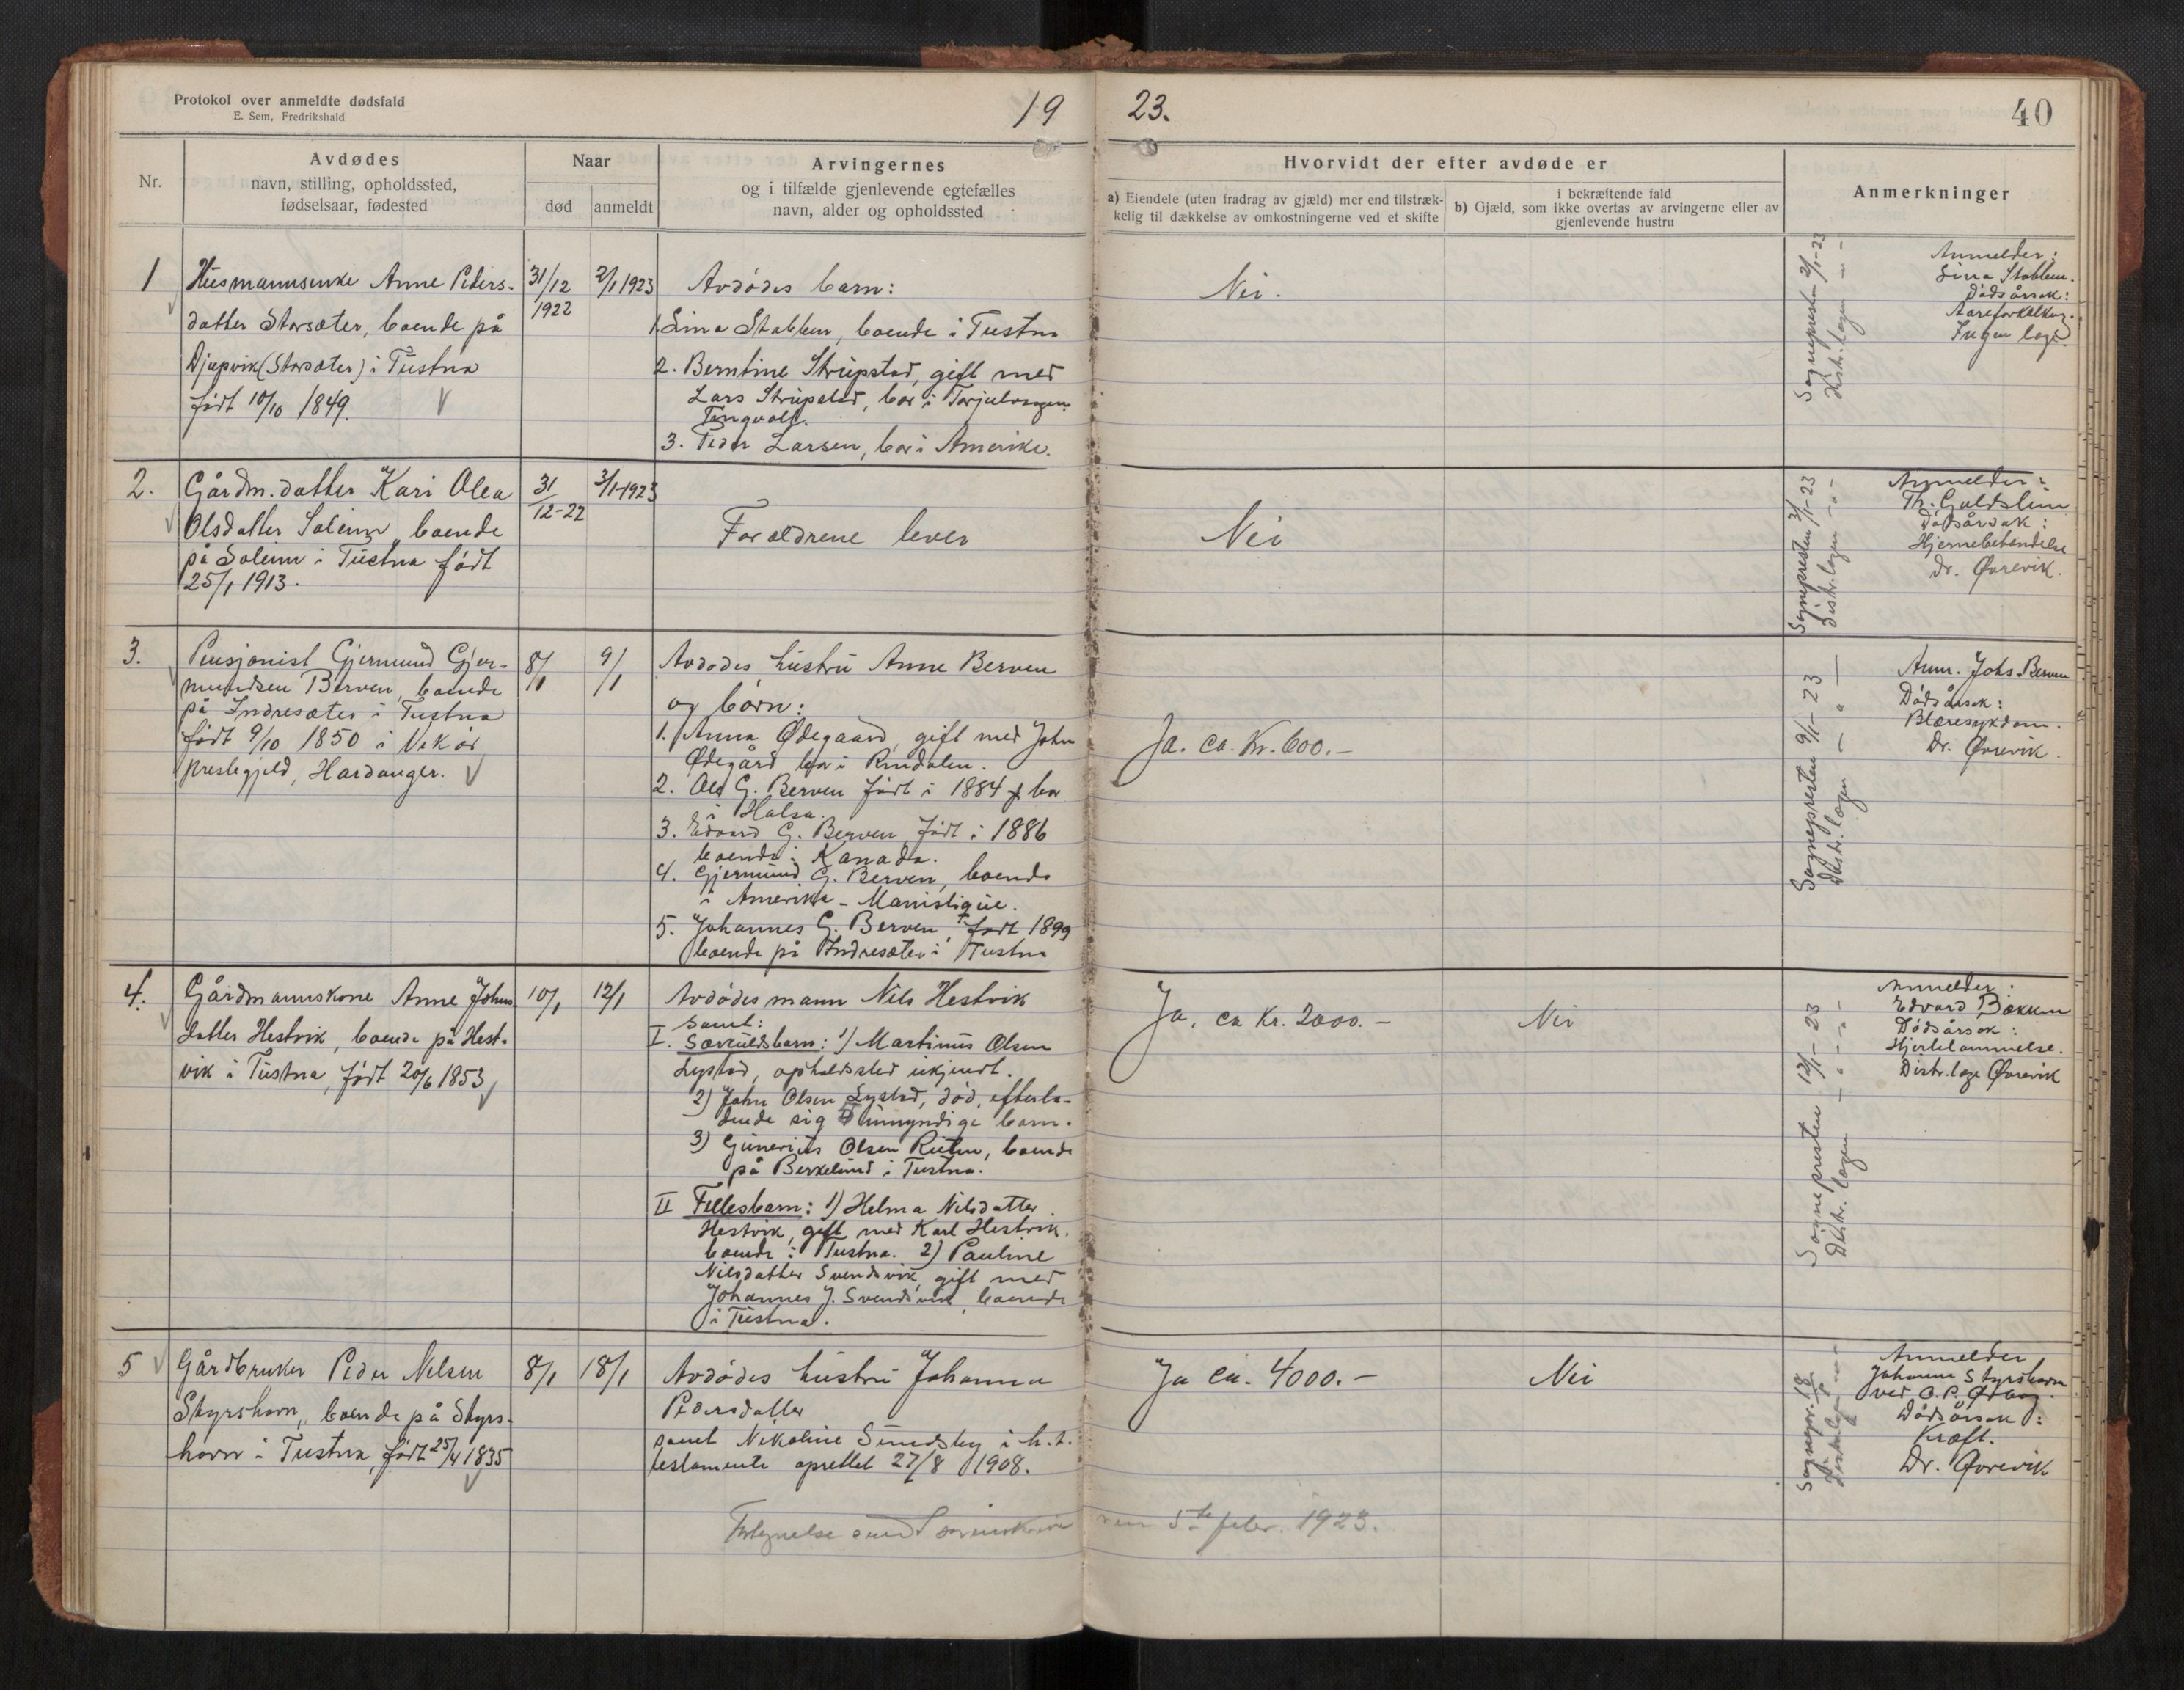 Protokol over anmeldte dødsfald
E. Sem, Fredrikshald
19 23.
40
Nr.
Avdødes
navn, stilling, opholdssted,
fødselsaar, fødested
Naar
død
anmeldt
Arvingernes
og i tilfælde gjenlevende egtefælles
navn, alder og opholdssted
Hvorvidt der efter avdøde er
a) Eiendele (uten fradrag av gjæld) mer end tilstræk-
kelig til dækkelse av omkostningerne ved et skifte
i bekræftende fald
b) Gjæld, som ikke overtas av arvingerne eller av
gjenlevende hustru
Anmerkninger
1
Husmannsenke Anne Peders-
datter Storsæter, boende på
Djupvik (Storsæter) i Tustna
født 10/10 1849.
31/12
1922
2/1 1923
Avdødes barn:
1. Lina Stabben, boende i Tustna
2. Berntine Strupstad, gift med
Lars Strupstad, bor i Torjulvaagen
Tingvoll.
3. Peder Larsen, bor i Amerika.
Nei.
Sognepresten 2/1-23
Distr.lægen - " -
Anmelder:
Lina Stabben.
Dødsårsak:
Aareforkalkng.
Ingen læge.
2.
Gårdm.datter Kari Olea
Olsdatter Soleim, boende
på Soleim i Tustna født
25/1 1913.
31
12-22
3/1-1923
Forældrene lever
Nei
Sognepresten 3/1-23
Distr.lægen - " -
Anmelder:
Th. Guldstein
Dødsårsak:
Hjernebetendelse
Dr. Øvrevik.
3.
Pensjonist Gjermund Gjer-
mundsen Berven, boende
på Indresæter i Tustna
født 9/10 1850 i Vikør
prestegjeld, Hardanger.
8/1
9/1
Avdødes hustru Anne Berven
og børn:
1. Anna Ødegaard, gift med John
Ødegård bor i Rindalen.
2. Ole G. Berven født i 1884 bor
i Halsa.
3. Edvard G. Berven født i 1886
boende i Kanada.
4. Gjermund G. Berven, boende
i Amerika - Manistique.
5. Johannes G. Berven, født 1899
boende på Indresæter i Tustna
Ja. ca. Kr. 600.-
Sognepresten 9/1-23
Distr.lægen - " -
Anm. Johs. Berven
Dødsårsak:
Blæresykdom.
Dr. Øvrevik.
4.
Gårdmannskone Anne Johns-
datter Hestvik, boende på Hest-
vik i Tustna, født 20/6 1853
10/1
12/1
Avdødes mann Nils Hestvik
samt:
I. Særkuldsbarn: 1) Martinus Olsen
Lystad, opholdssted ukjendt.
2) John Olsen Lystad, død, efterla-
dende sig umyndige barn.
3) Gunerius Olsen, boende
på Berkelund i Tustna.
II Fellesbarn: 1) Helma Nilsdatter
Hestvik, gift med Karl Hestvik.
boende i Tustna. 2) Pauline
Nilsdatter Svendsvik, gift med
Johannes J. Svendsvik, boende
i Tustna.
Ja, ca Kr. 2000.-
Nei
Sognepresten 12/1-23
Distr. lægen - " -
Anmelder:
Edvard Bakken
Dødsårsak:
Hjertelammelse.
Distr.læge Øvrevik
5
Gårdbruker Peder Nilsen
Skyrshavn, boende på Skyrs-
havn i Tustna, født 25/4 1835
8/1
18/1
Avdødes hustru Johanna
Pedersdatter
samt Nikoline Sundsby i h.t.
testamente oprettet 27/8 1908.
Ja ca. 4000.-
Nei
Sognepr. 18/1
Anmelder
Johanna Skyrshavn
ved O. P.
Dødsårsak:
Kræft.
Dr. Øvrevik
Fortegnelse sendt sorenskriveren 5te febr. 1923.